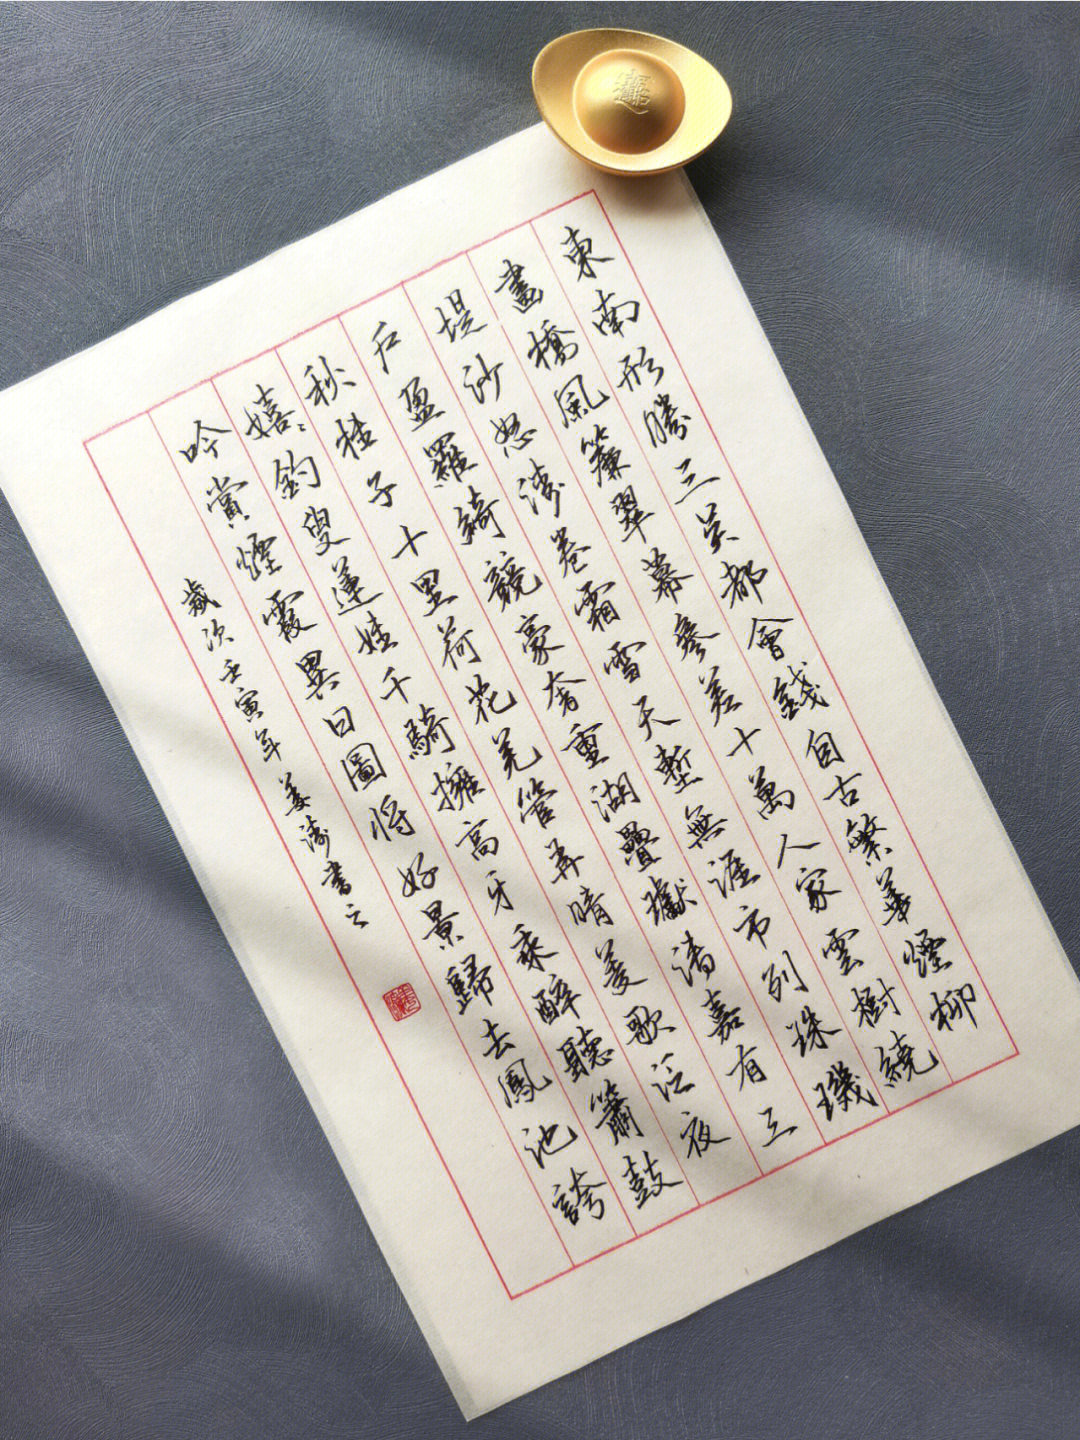 東南形勝三吴都會錢自古繁華煙柳
畫橋風簾翠幕參差十萬人家雲樹繞
堤沙怒濤卷霜雪天塹無涯市列珠璣
户盈羅綺競豪奢重湖疊巘清嘉有三
秋桂子十里荷花羌管弄晴菱歌泛夜
嬉〻釣叟蓮娃千騎擁高牙乘醉聽簫鼓
吟賞煙霞異日圖將好景歸去鳳池誇
歲次壬寅年姜濤書之